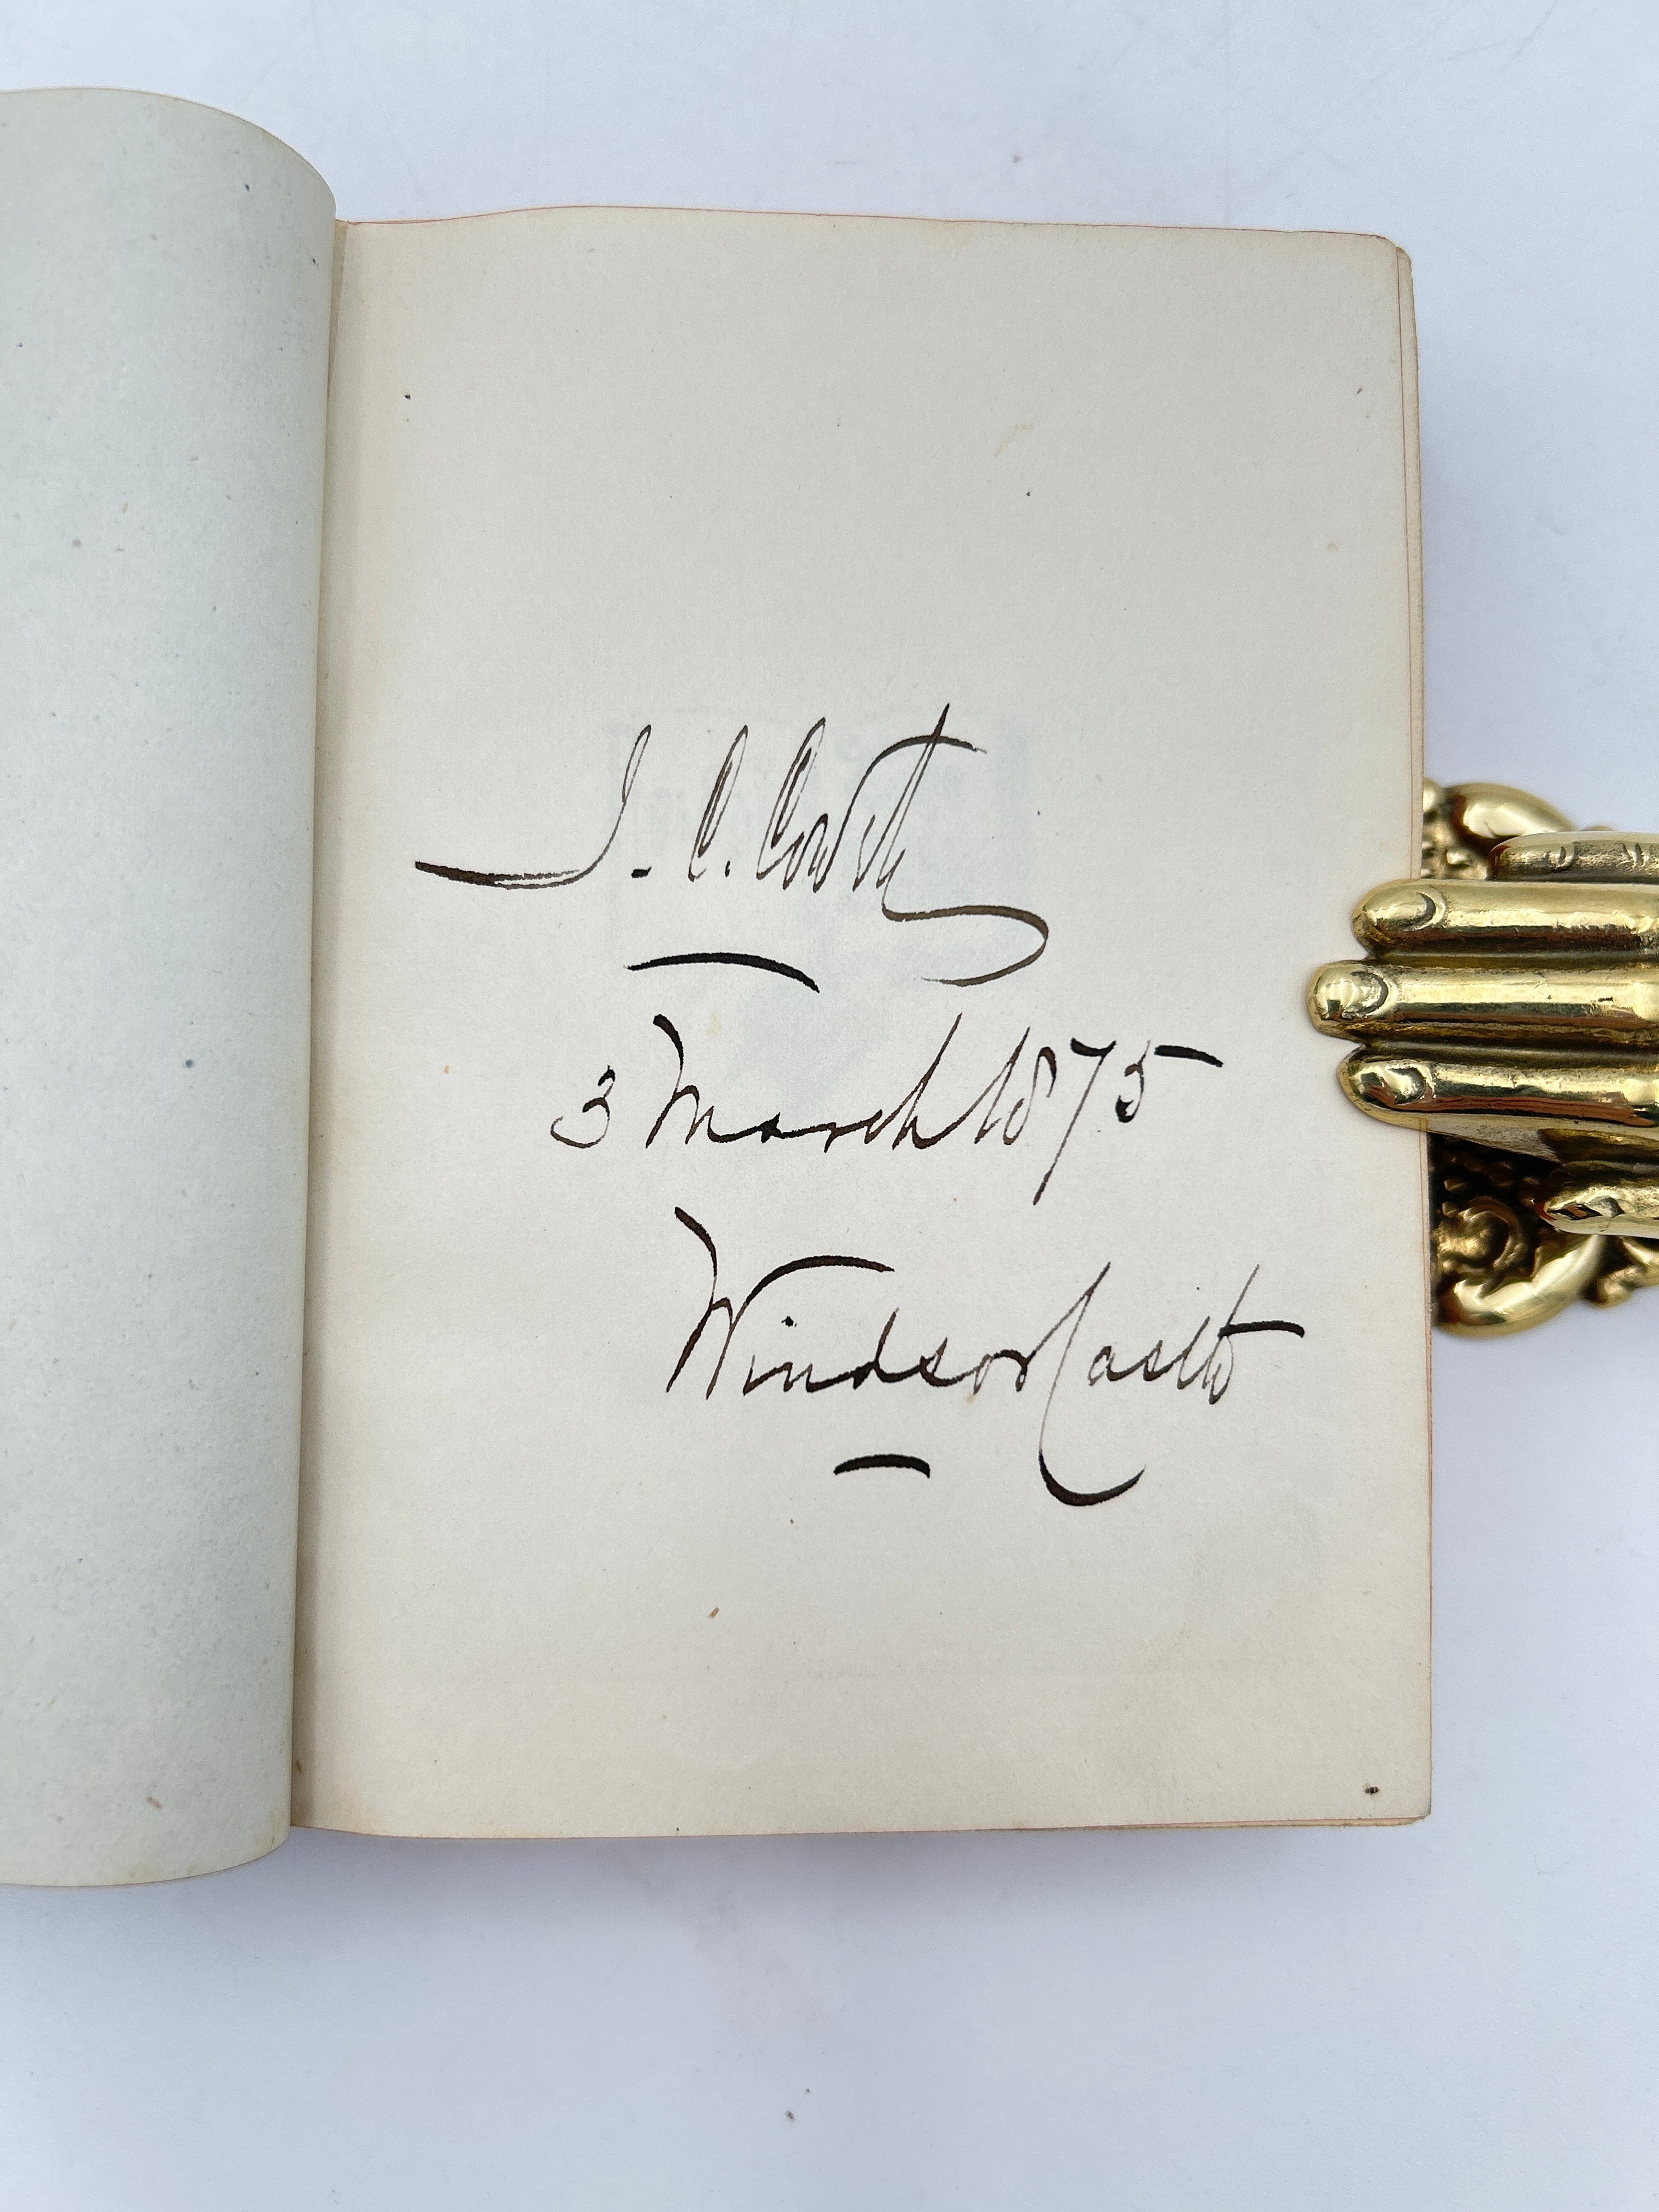 J. C. Cowell
3 March 1875
Windsor Castle